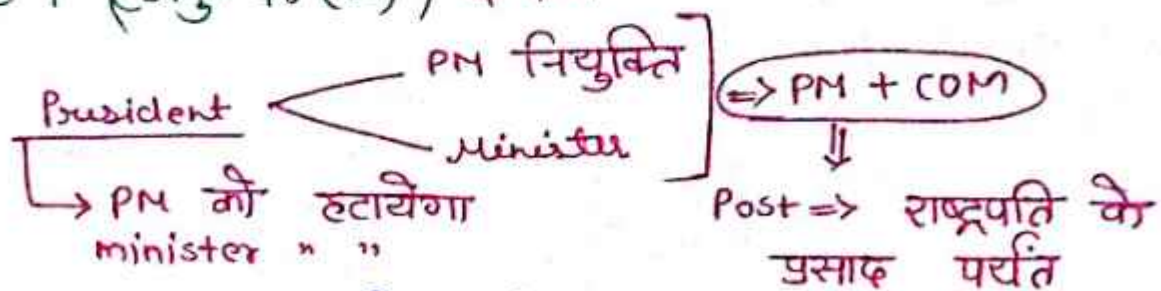 PM नियुक्ति
President
Minister
=> PM + COM
PM को हटायेगा
minister " "
Post => राष्ट्रपति के
प्रसाद पर्यंत